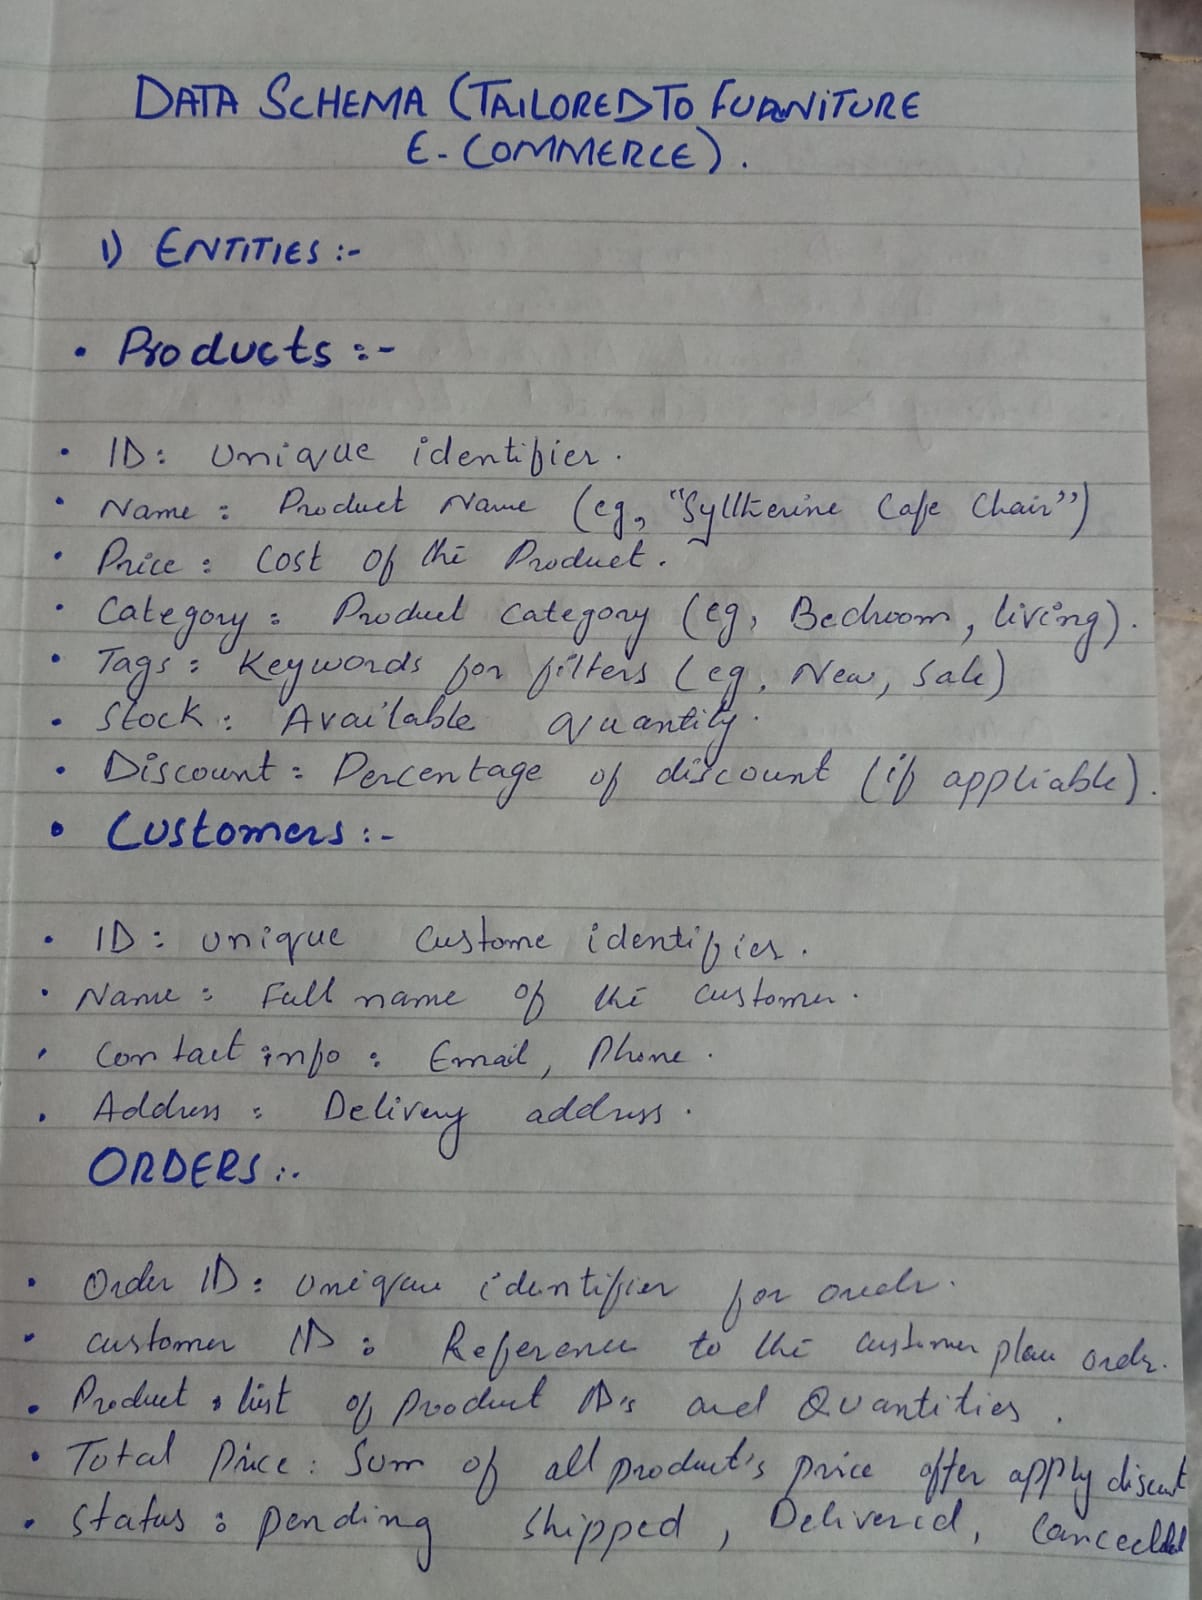 DATA SCHEMA (TAILORED TO FURNITURE
E-COMMERCE).
1) ENTITIES :-
• Products :-
• ID: Unique identifier.
• Name: Product Name (eg, "Sylltherine Cafe Chair")
• Price: Cost of the Product.
• Category: Product category (eg, Bedroom, living).
• Tags: Keywords for filters (eg, New, Sale)
• Stock: Available quantity.
• Discount: Percentage of discount (if appliable).
• Customers :-
• ID: unique custome identifier.
• Name: Full name of the customer.
• Contact info: Email, Phone.
• Address: Delivery address.
ORDERS :-
• Order ID: Unique identifier for order.
• customer ID: Reference to the customer place order.
• Product: list of product ID's and Quantities.
• Total Price: Sum of all product's price after apply
• Status: pending shipped, Delivered,